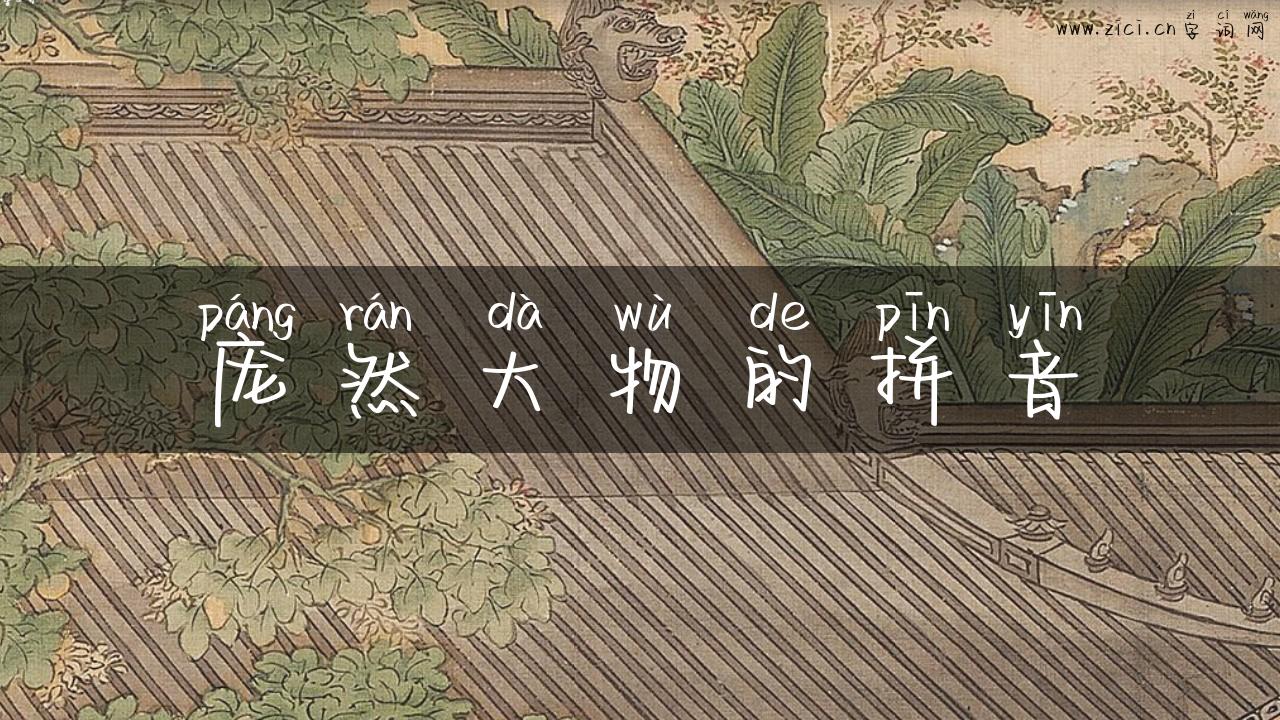 zì cí wǎng
www.zici.cn 字词网
páng rán dà wù de pīn yīn
庞然大物的拼音